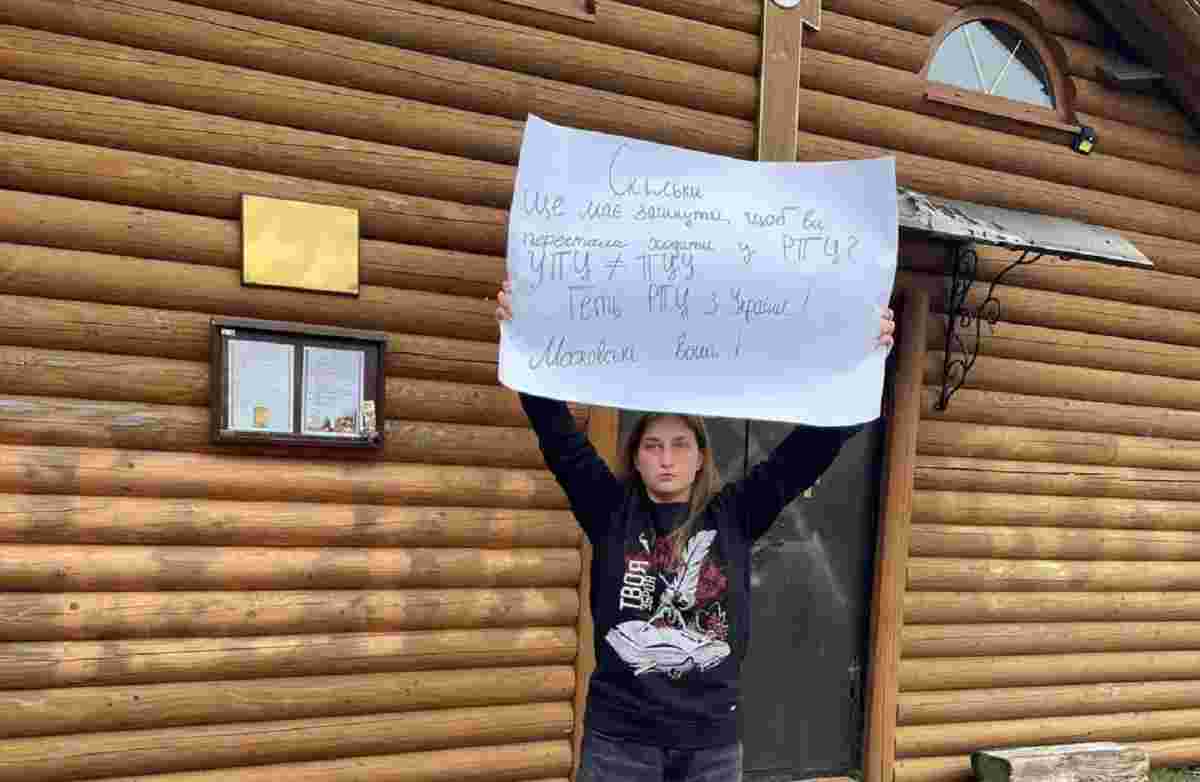 Скільки
ще має загинути, щоб ви
перестали ходити у РПЦ?
УПЦ ≠ ПЦУ
Геть РПЦ з України!
Московські воши!
ТВОЯ
ЗБРОЯ